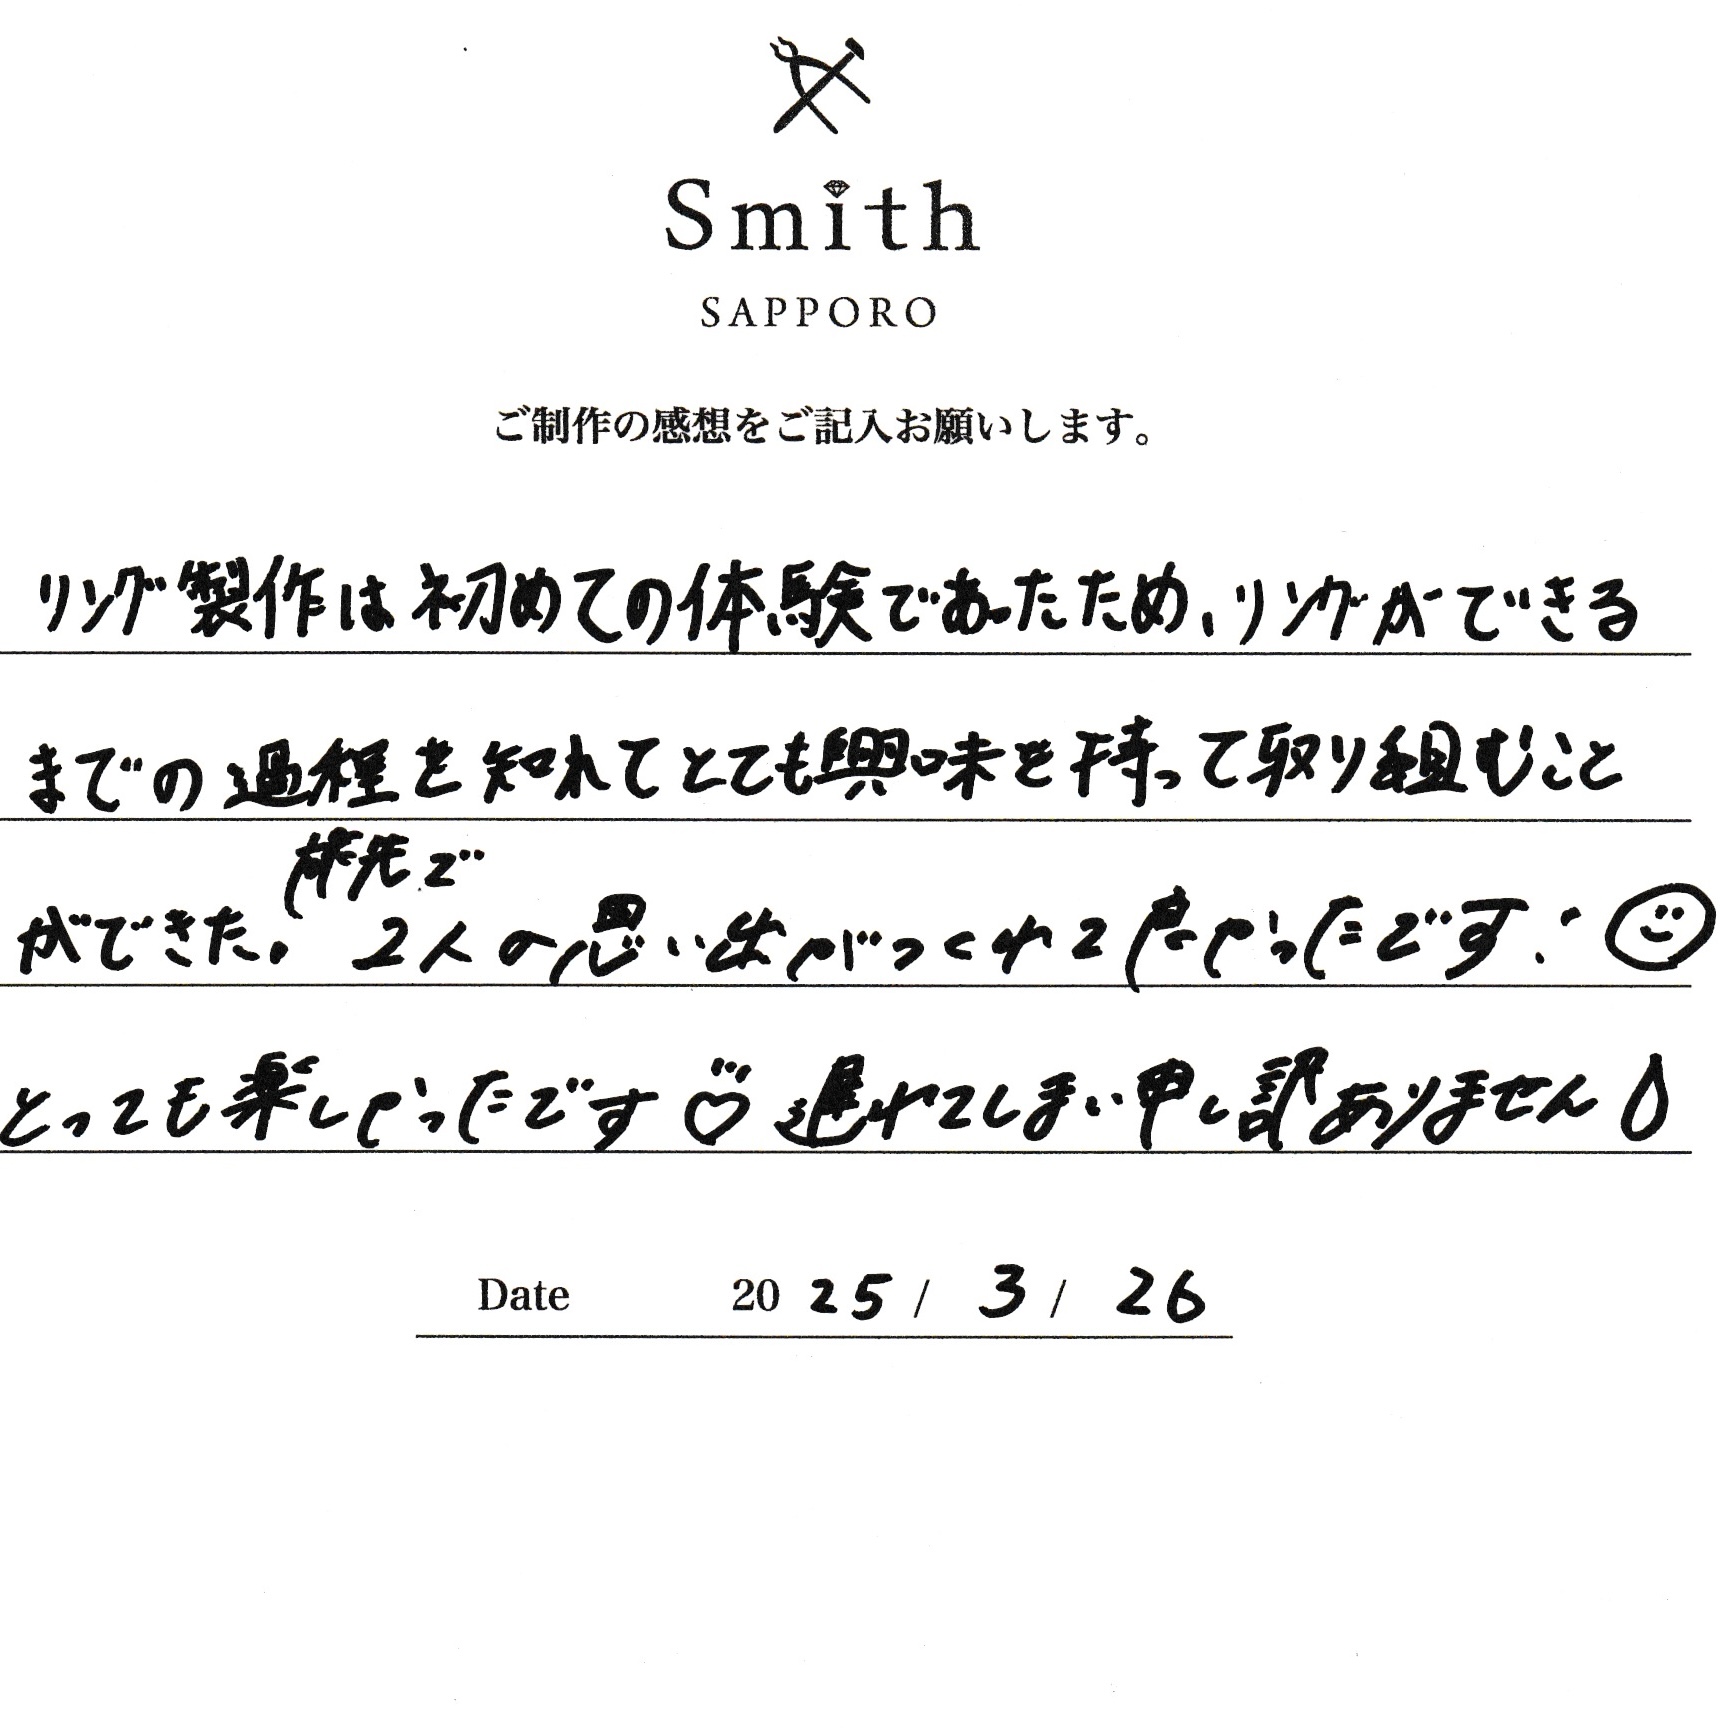 Smith
SAPPORO
ご制作の感想をご記入お願いします。
リング製作は初めての体験であったため、リングができる
までの過程を知れてとても興味を持って取り組むこと
旅先で
ができた。2人の思い出がつくれて良かったです!
とっても楽しかったです♡ 遅れてしまい申し訳ありません
Date 2025 / 3 / 26